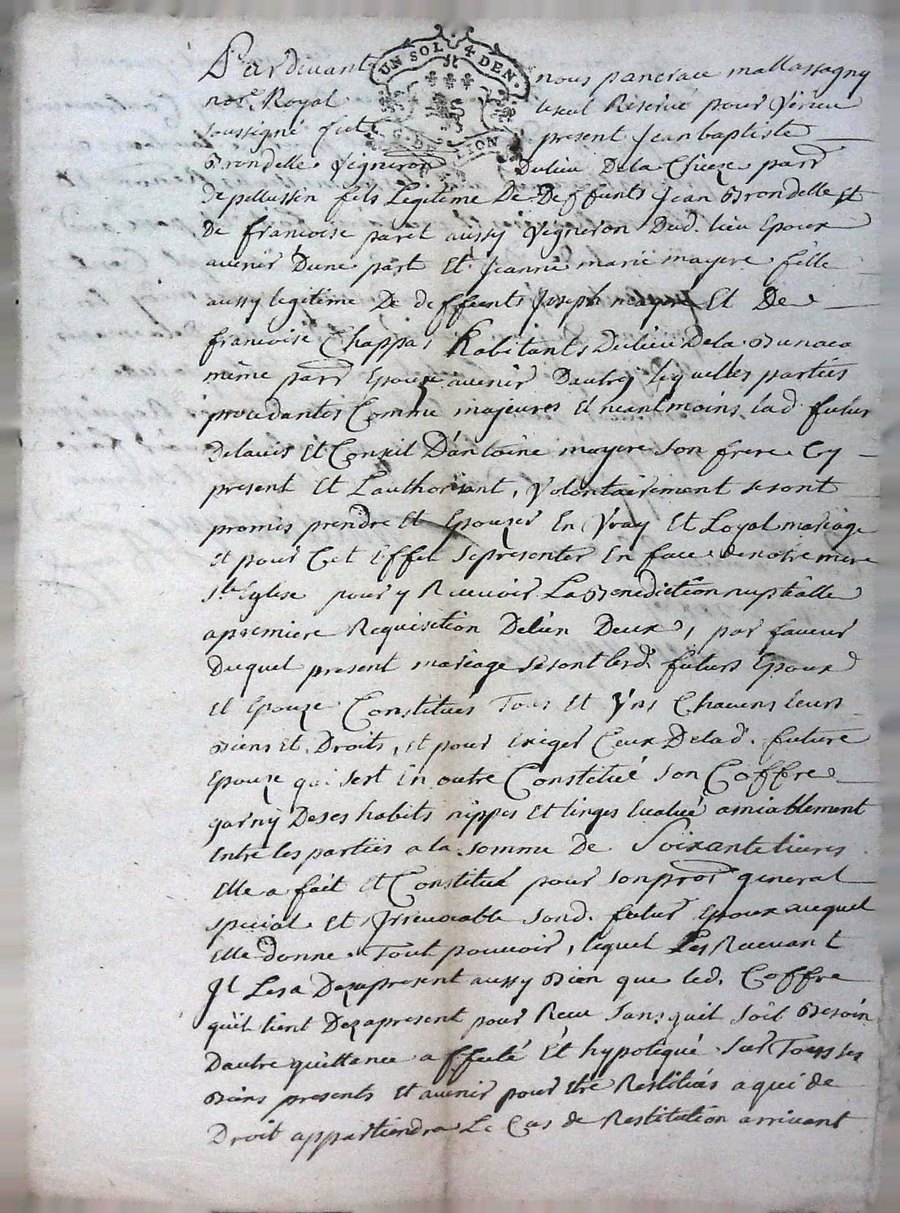 UN SOL 4 DEN.
Pardevant nous pancrace mallassagny
nore. Royal le seul Reservé pour Verieu
soussigné fut present Jean baptiste
Brondelle Vigneron Dulieu Dela Chieze parr
de pellussin fils Legitime De Deffunts Jean Brondelle Et
De francoise paret aussy Vigneron Dud. lieu Epoux
avenir Dune part Et Jeanne marie mayere fille
aussy legitime De deffunts Joseph mayere Et De
francoise Chappas habitants Dulieu Dela
même parr Epouze avenir Dautre lesquelles parties
procedantes Comme majeures Et neantmoins lad. future
Delavis Et Conseil Dantoine mayere son frere Cy
present Et Lauthorisant, Volontairement se sont
promis prendre Et Epouzer En Vray Et Loyal mariage
Et pour Cet Effet se presenter En face de notre mere
Ste Eglise pour y Recevoir La Benediction nuptialle
apremiere Requisition Delun Deux, par faveur
Duquel present mariage se sont lesd. futurs Epoux
Et Epouze Constitués Tous Et Uns Chacuns leurs
Biens Et Droits, Et pour Exiger Ceux Delad. future
Epouze qui sest En outre Constitué son Coffre
garny Deses habits nippes Et linges Evalué amiablement
Entre les parties a la somme De Soixante livres
Elle a fait Et Constitué pour son procr general
special Et Irrevocable sond. futur Epoux auquel
Elle donne Tout pouvoir, lequel Les Recevant
Il Lesa Dezapresent aussy Bien que led. Coffre
quil tient Dezapresent pour Receu sans quil soit Besoin
Dautre quittance affecté Et hypotequé sur Tous ses
Biens presents Et avenir pour Etre Restitués a qui de
Droit appartiendra Le Cas de Restitution arrivant